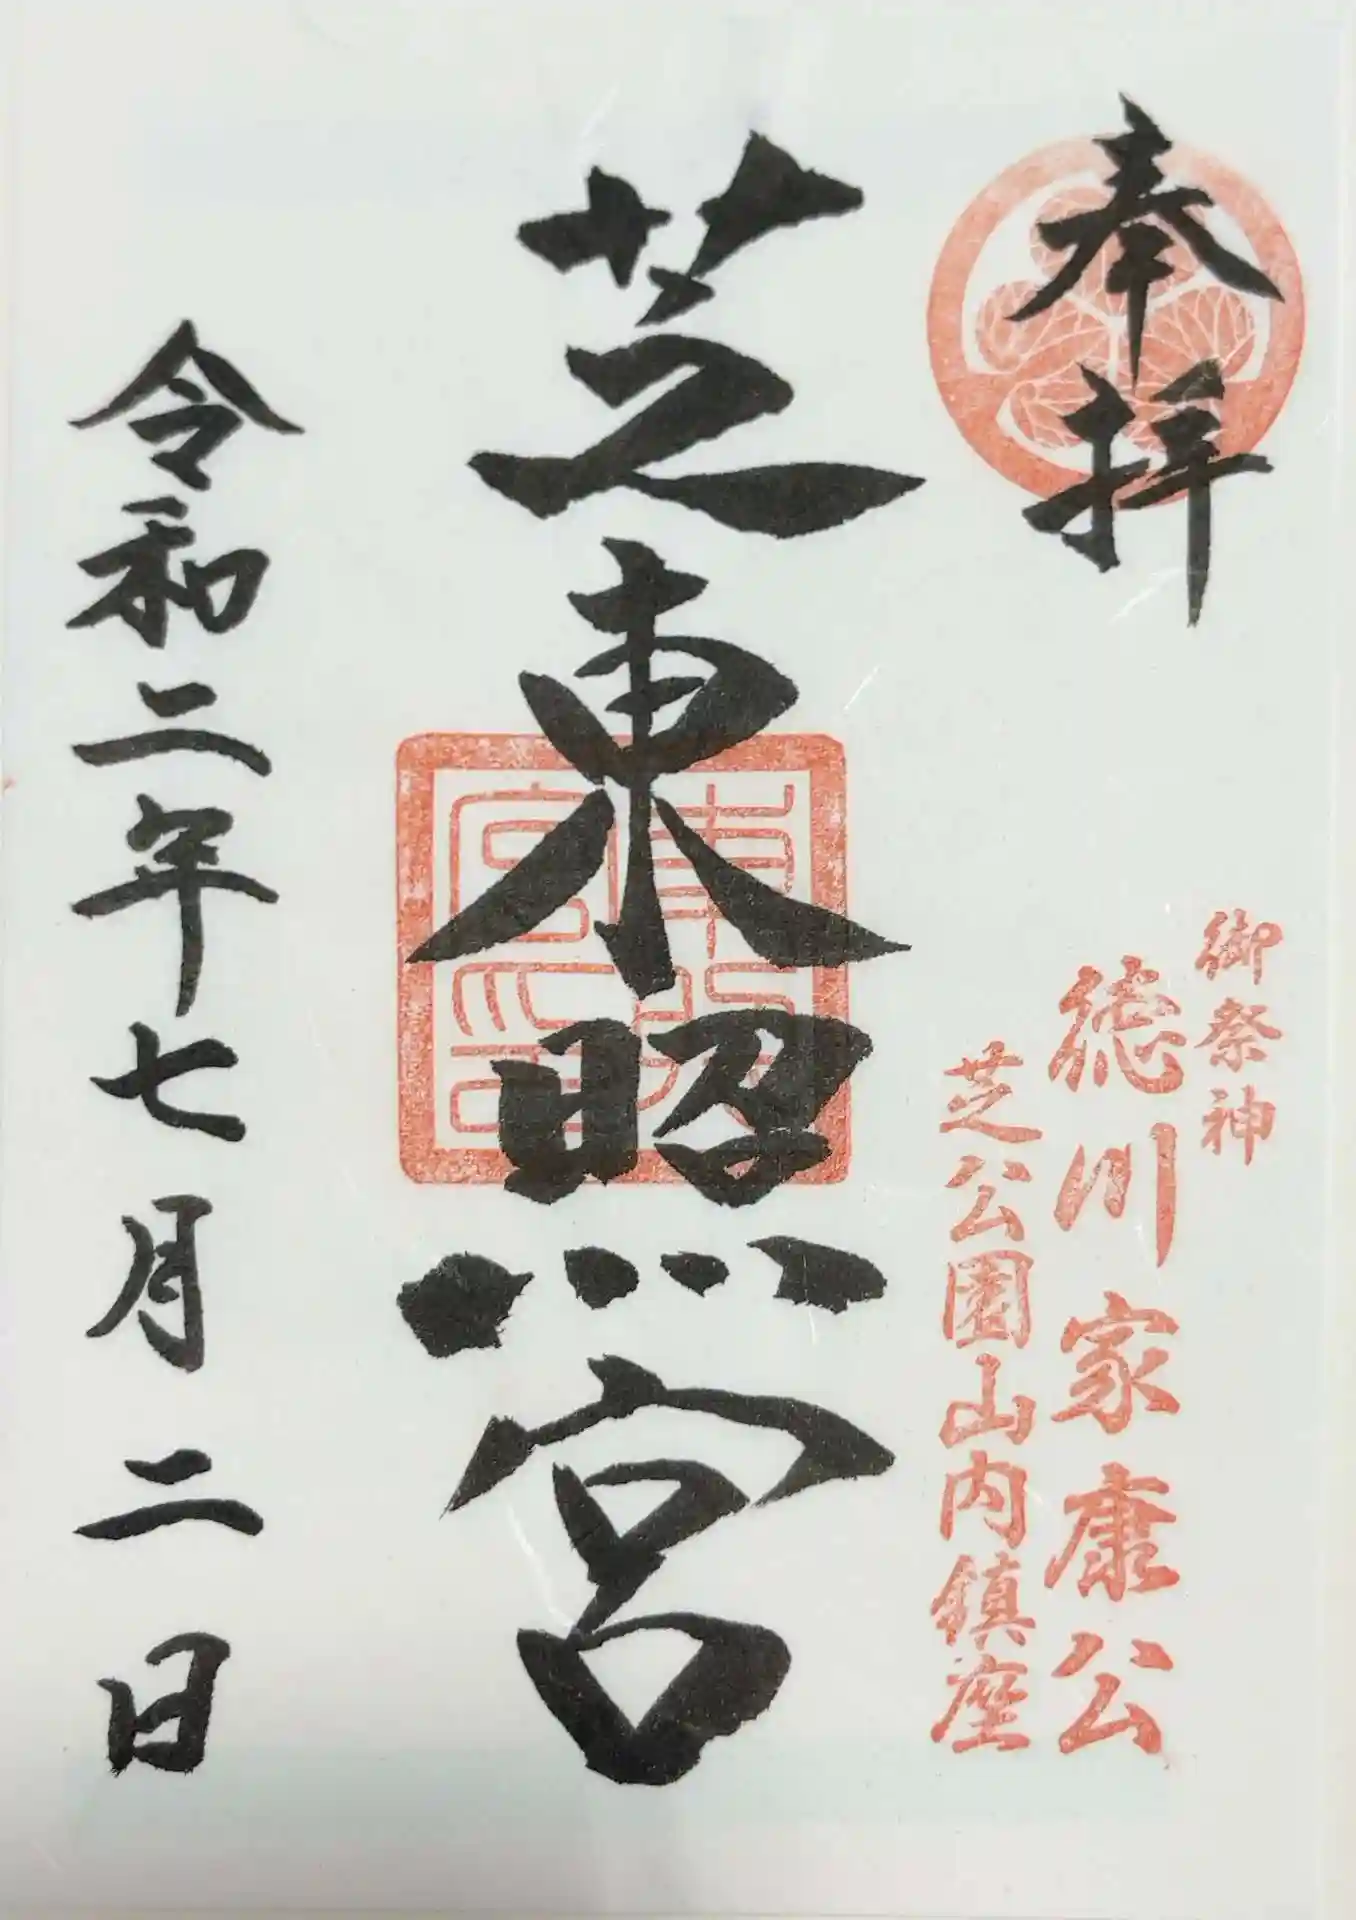 奉拝
御祭神
徳川家康公
芝公園山内鎮座
芝東照宮
東照宮印
令和二年七月二日